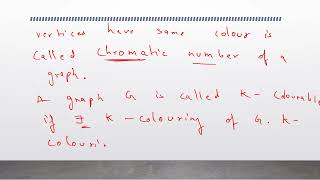 vertices have same colour is
called chromatic number of a
graph.
A graph G is called K- Colourable
if ∃ K -colouring of G. K-
colouri.